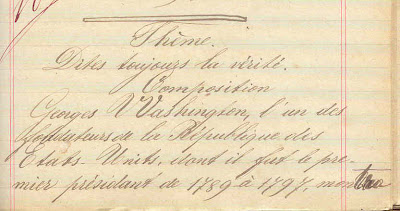 Thème.
Dites toujours la vérité.
Composition
Georges Washington, l'un des
fondateurs de la République des
États-Unis, dont il fut le pre-
mier présidant de 1789 à 1797, montra